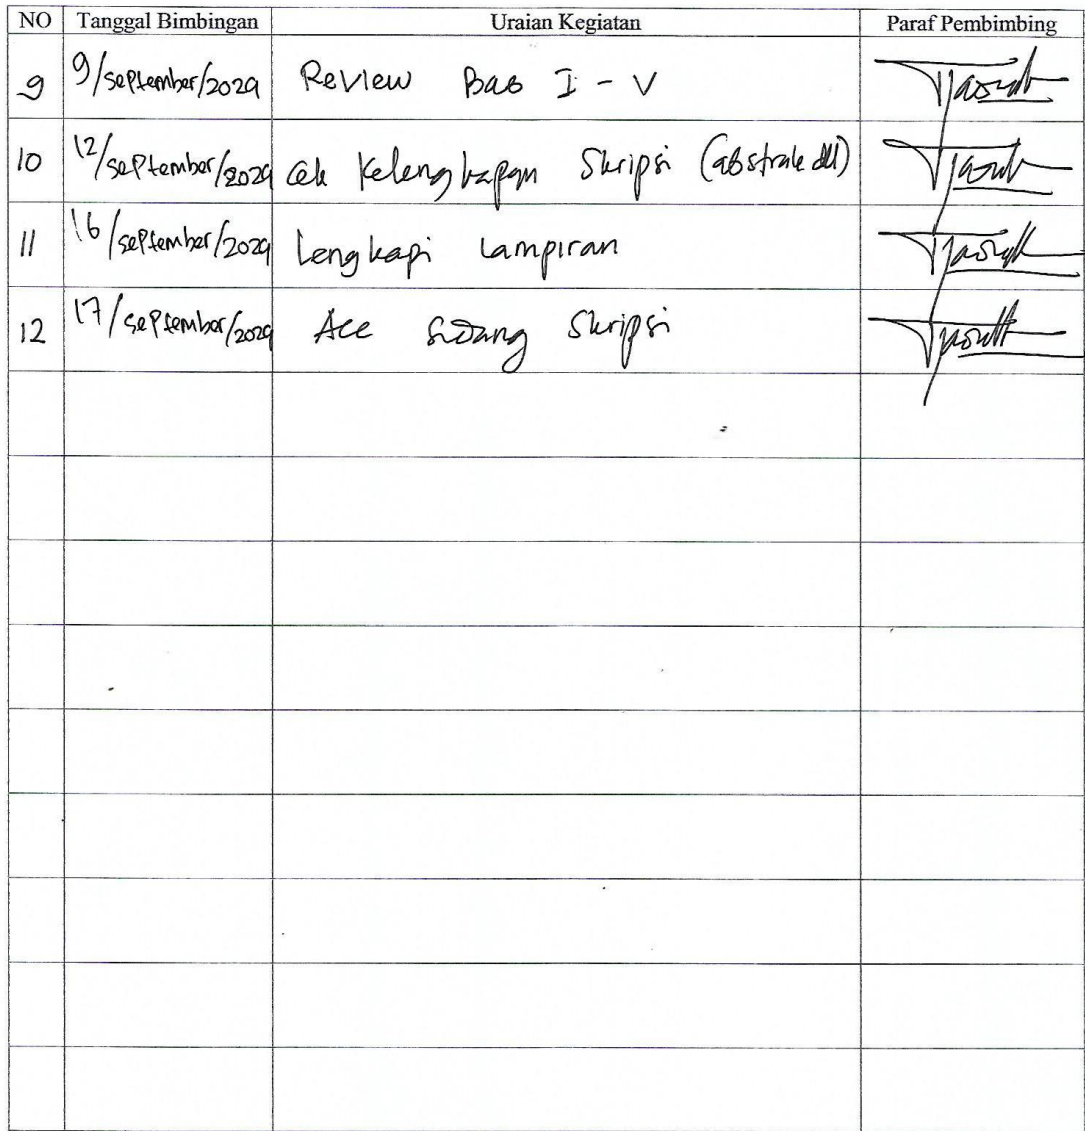 NO Tanggal Bimbingan Uraian Kegiatan Paraf Pembimbing
9 9/September/2024 Review Bab I - V
10 12/September/2024 Cek Kelengkapan Skripsi (abstrak dll)
11 16/September/2024 Lengkapi Lampiran
12 17/September/2024 Acc Sidang Skripsi